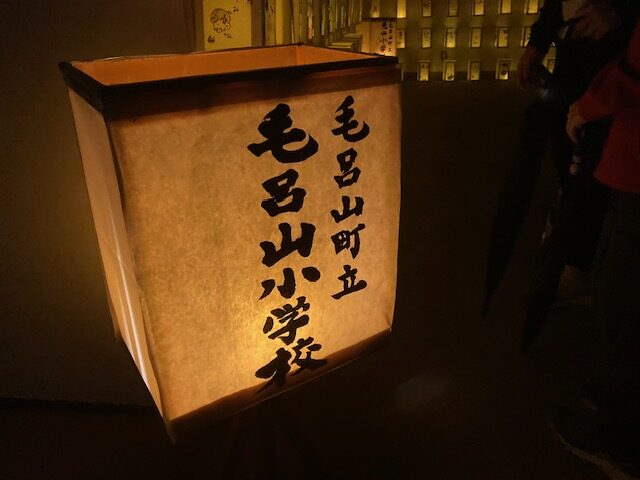 毛呂山町立
毛呂山小学校